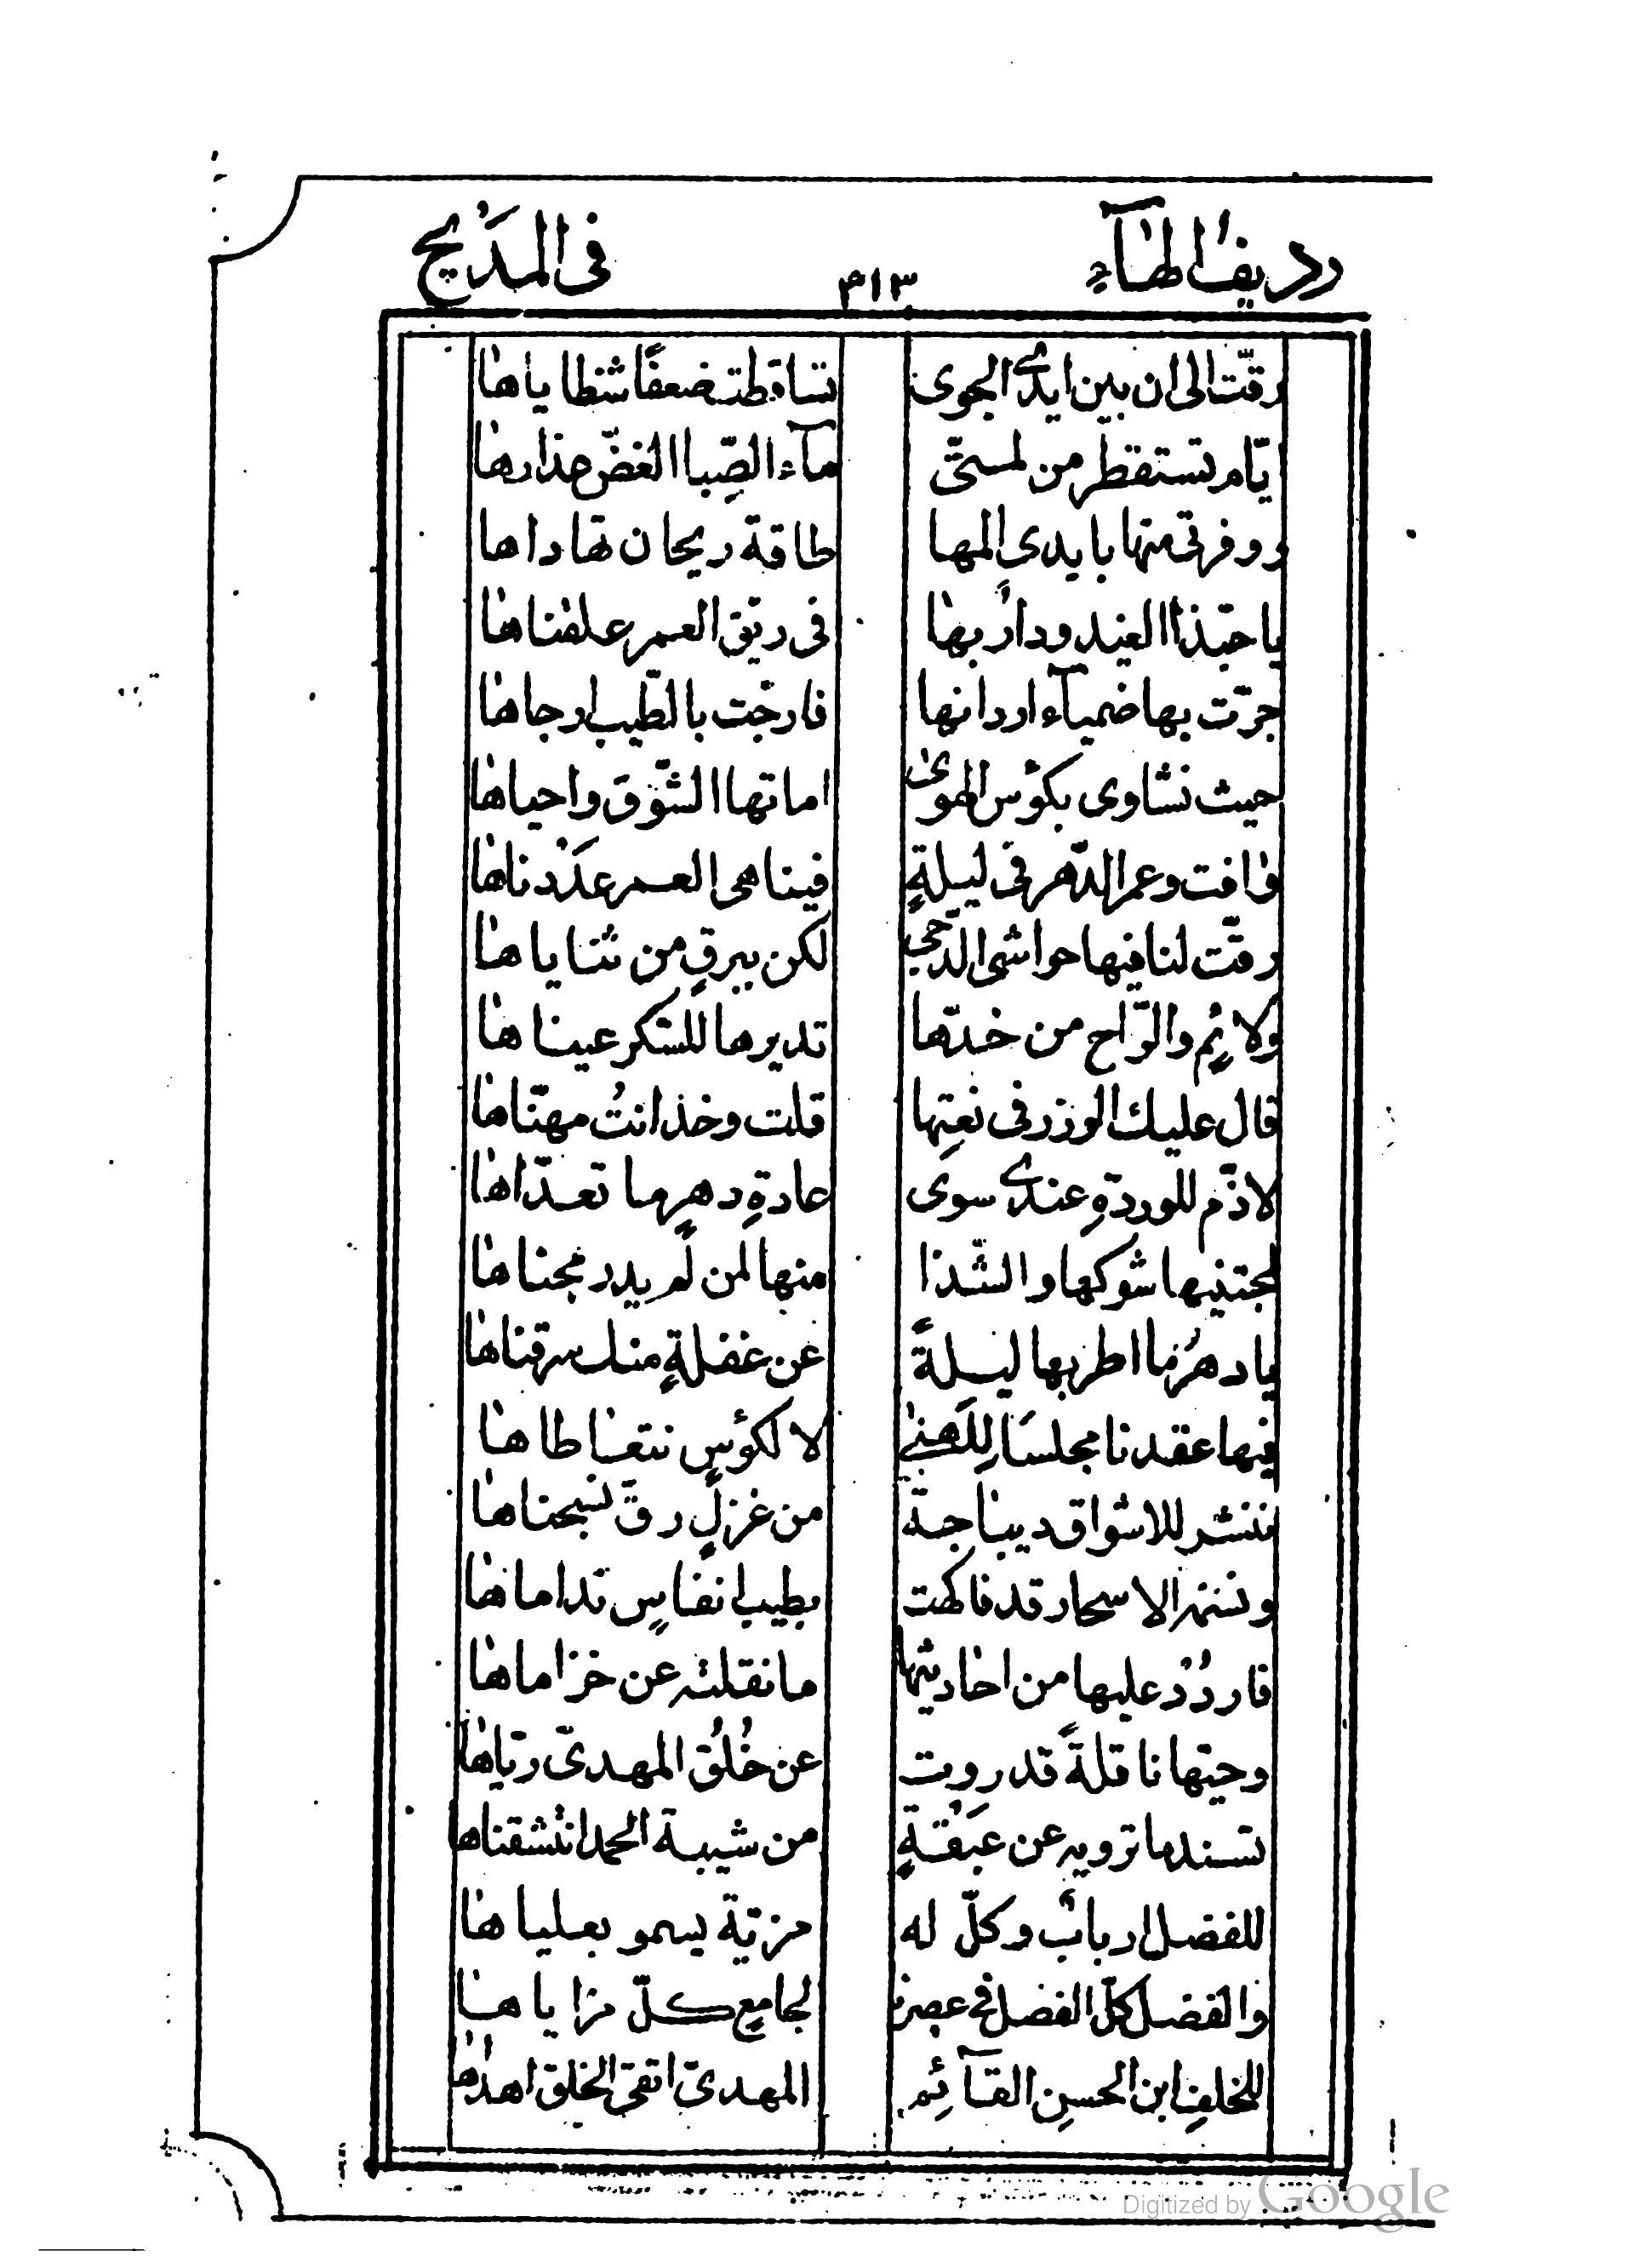 رديف الهآءِ ٣١٣ في المَدْيح
رقّت الى ان بين ايدى الجوى تساقطت ضعفًا شظاياها
ايّام تستقطر من لمستى مآء الصِّبا الغضّ عذاراها
ووفرتى منها بايدى المها طاقة ريحان تهاداها
يا حبّذا الغيد ودارٌ بها في ريّق العمر علقناها
جرّت بها ضميآء اردانها فارجّت بالطّيب ارجاها
حيث نشاوى بكؤس الهوى اماتها الشّوق واحياها
وافت وعمر الدّهر في ليلةٍ فينا هي العمر عَدَدناها
رقّت لنا فيها حواشى الدّجى لكن ببرقٍ من ثناياها
ولائِمٍ والرّاح من خدّها تديرها للسّكر عيناها
قال عليك الوزر في نعتِها قلت وخذ انتُ مهنّاها
لا ذّم للوردةِ عندى سوى عادةِ دهرٍ ما تعدّاها
لمجتنيها شوكها والشّذا منها لمن لم يدر مجناها
يا دهرُ ما اطربها ليلةً عن غفلةٍ منك سرقناها
فيها عقدنا مجلسًا لِلهنى لا لكؤسٍ نتعاطاها
ننشر للاشواق ديباجة من غزلٍ رقَ نسجناها
ونسمة الاسحار قد فاكهت بطيب انفاسٍ نداماها
فاردُدْ عليها من احاديثها ما نقلته عن خزاماها
وحيّها ناقلةً قد روت عن خُلُق المهدىّ ريّاها
تسند ما ترويه عن عَبَقةٍ من شيبة الحمد انتشقناها
للفضل اربابٌ وكلّ له مزيّة يسمو بعلياها
والفضل كلّ الفضل في عصرنا لجامعٍ كلّ مزاياها
للخلفِ ابن الحسنِ القآئِم المهدىّ اتقى الخلق اهداها
Digitized by Google